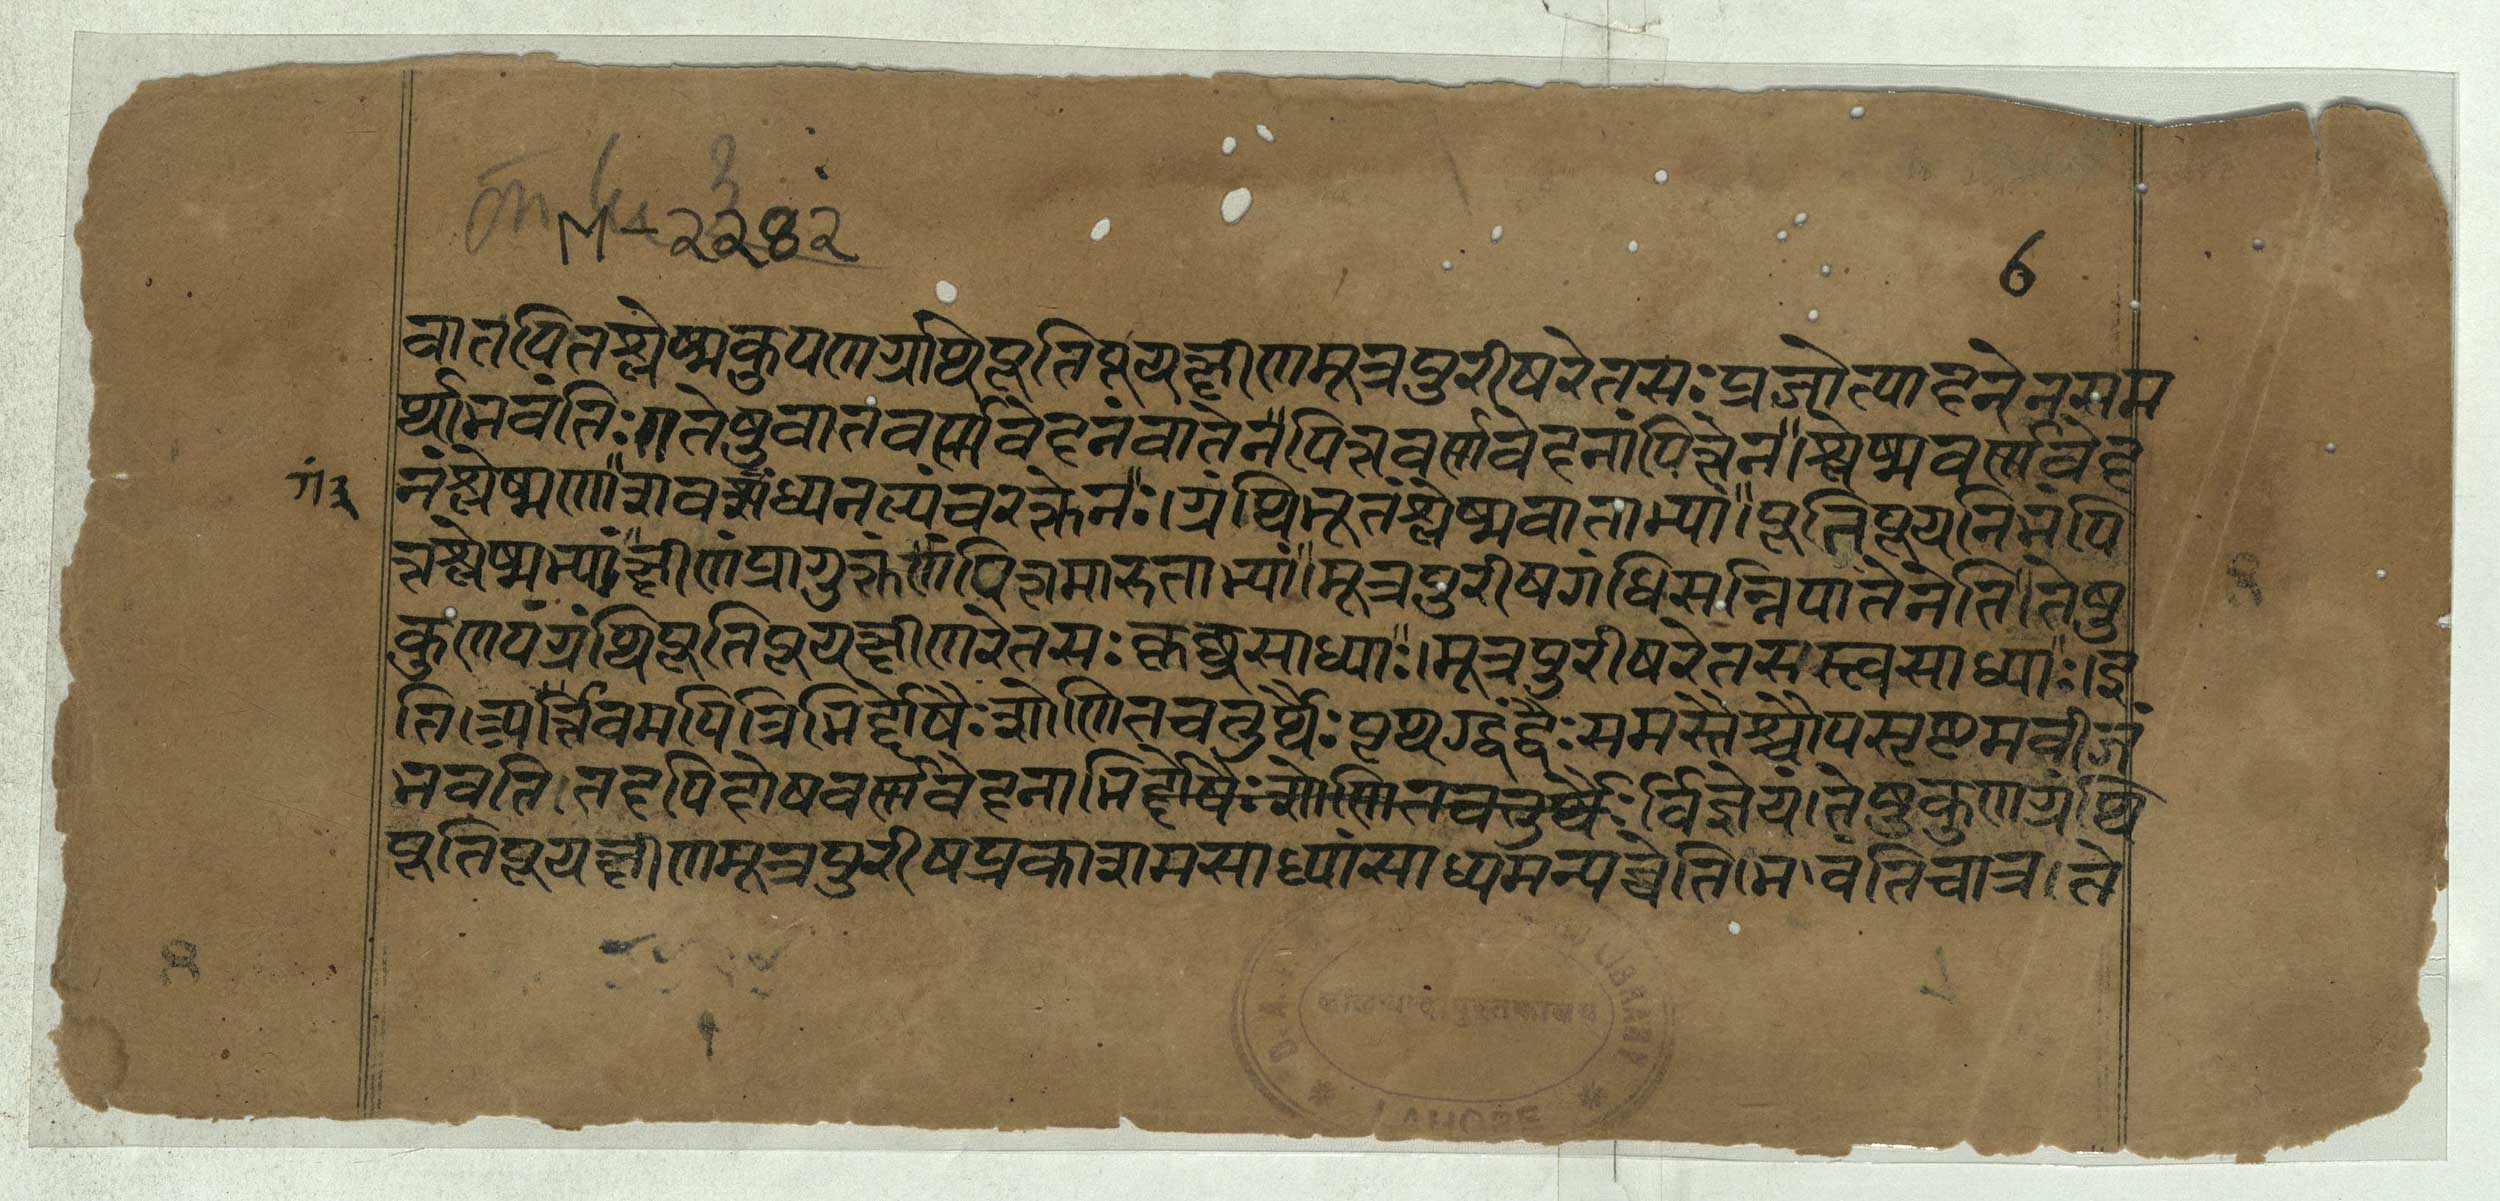 M-२२४२
6
वातपितश्लेष्मकुपणग्रंथिपूतिपूयक्षीणमूत्रपुरीषरेतसः प्रजोत्पादनेनसम
र्थाभवंतिः॥तेषुवातवर्णवेदनंवातेन॥पित्तवर्णवेदनांपित्तेन॥श्लेष्मवर्णवेद
नंश्लेष्मणा॥ ग्रंथिभूतंश्लेष्मवाताभ्यां॥पूतिपूयनिभंपि
त्तश्लेष्मभ्यां॥क्षीणंप्रागुक्तंपित्तमारुताभ्यां॥मूत्रपुरीषगंधिसन्निपातेनेति॥तेषु
कुणपंग्रंथिपूतिपूयक्षीणरेतसःकृच्छ्रसाध्याः।मूत्रपुरीषरेतसस्त्वसाध्याः।इ
ति॥ र्त्तवमपित्रिभिर्द्दोषैःशोणितचतुर्थैःपृथग्द्वंद्वैःसमस्तैश्चोपसृष्टमवीजं
भवति।तदपिदोषवर्णवेदनाभिर्द्दोषैःशोणितचतुर्थैःर्विज्ञेयं।तेषुकुणग्रंथि
पूतिपूयक्षीणमूत्रपुरीषप्रकाशमसाध्यांसाध्यमन्यच्चेति।भवंतिचात्र।ते
LIBRARY
LAHORE